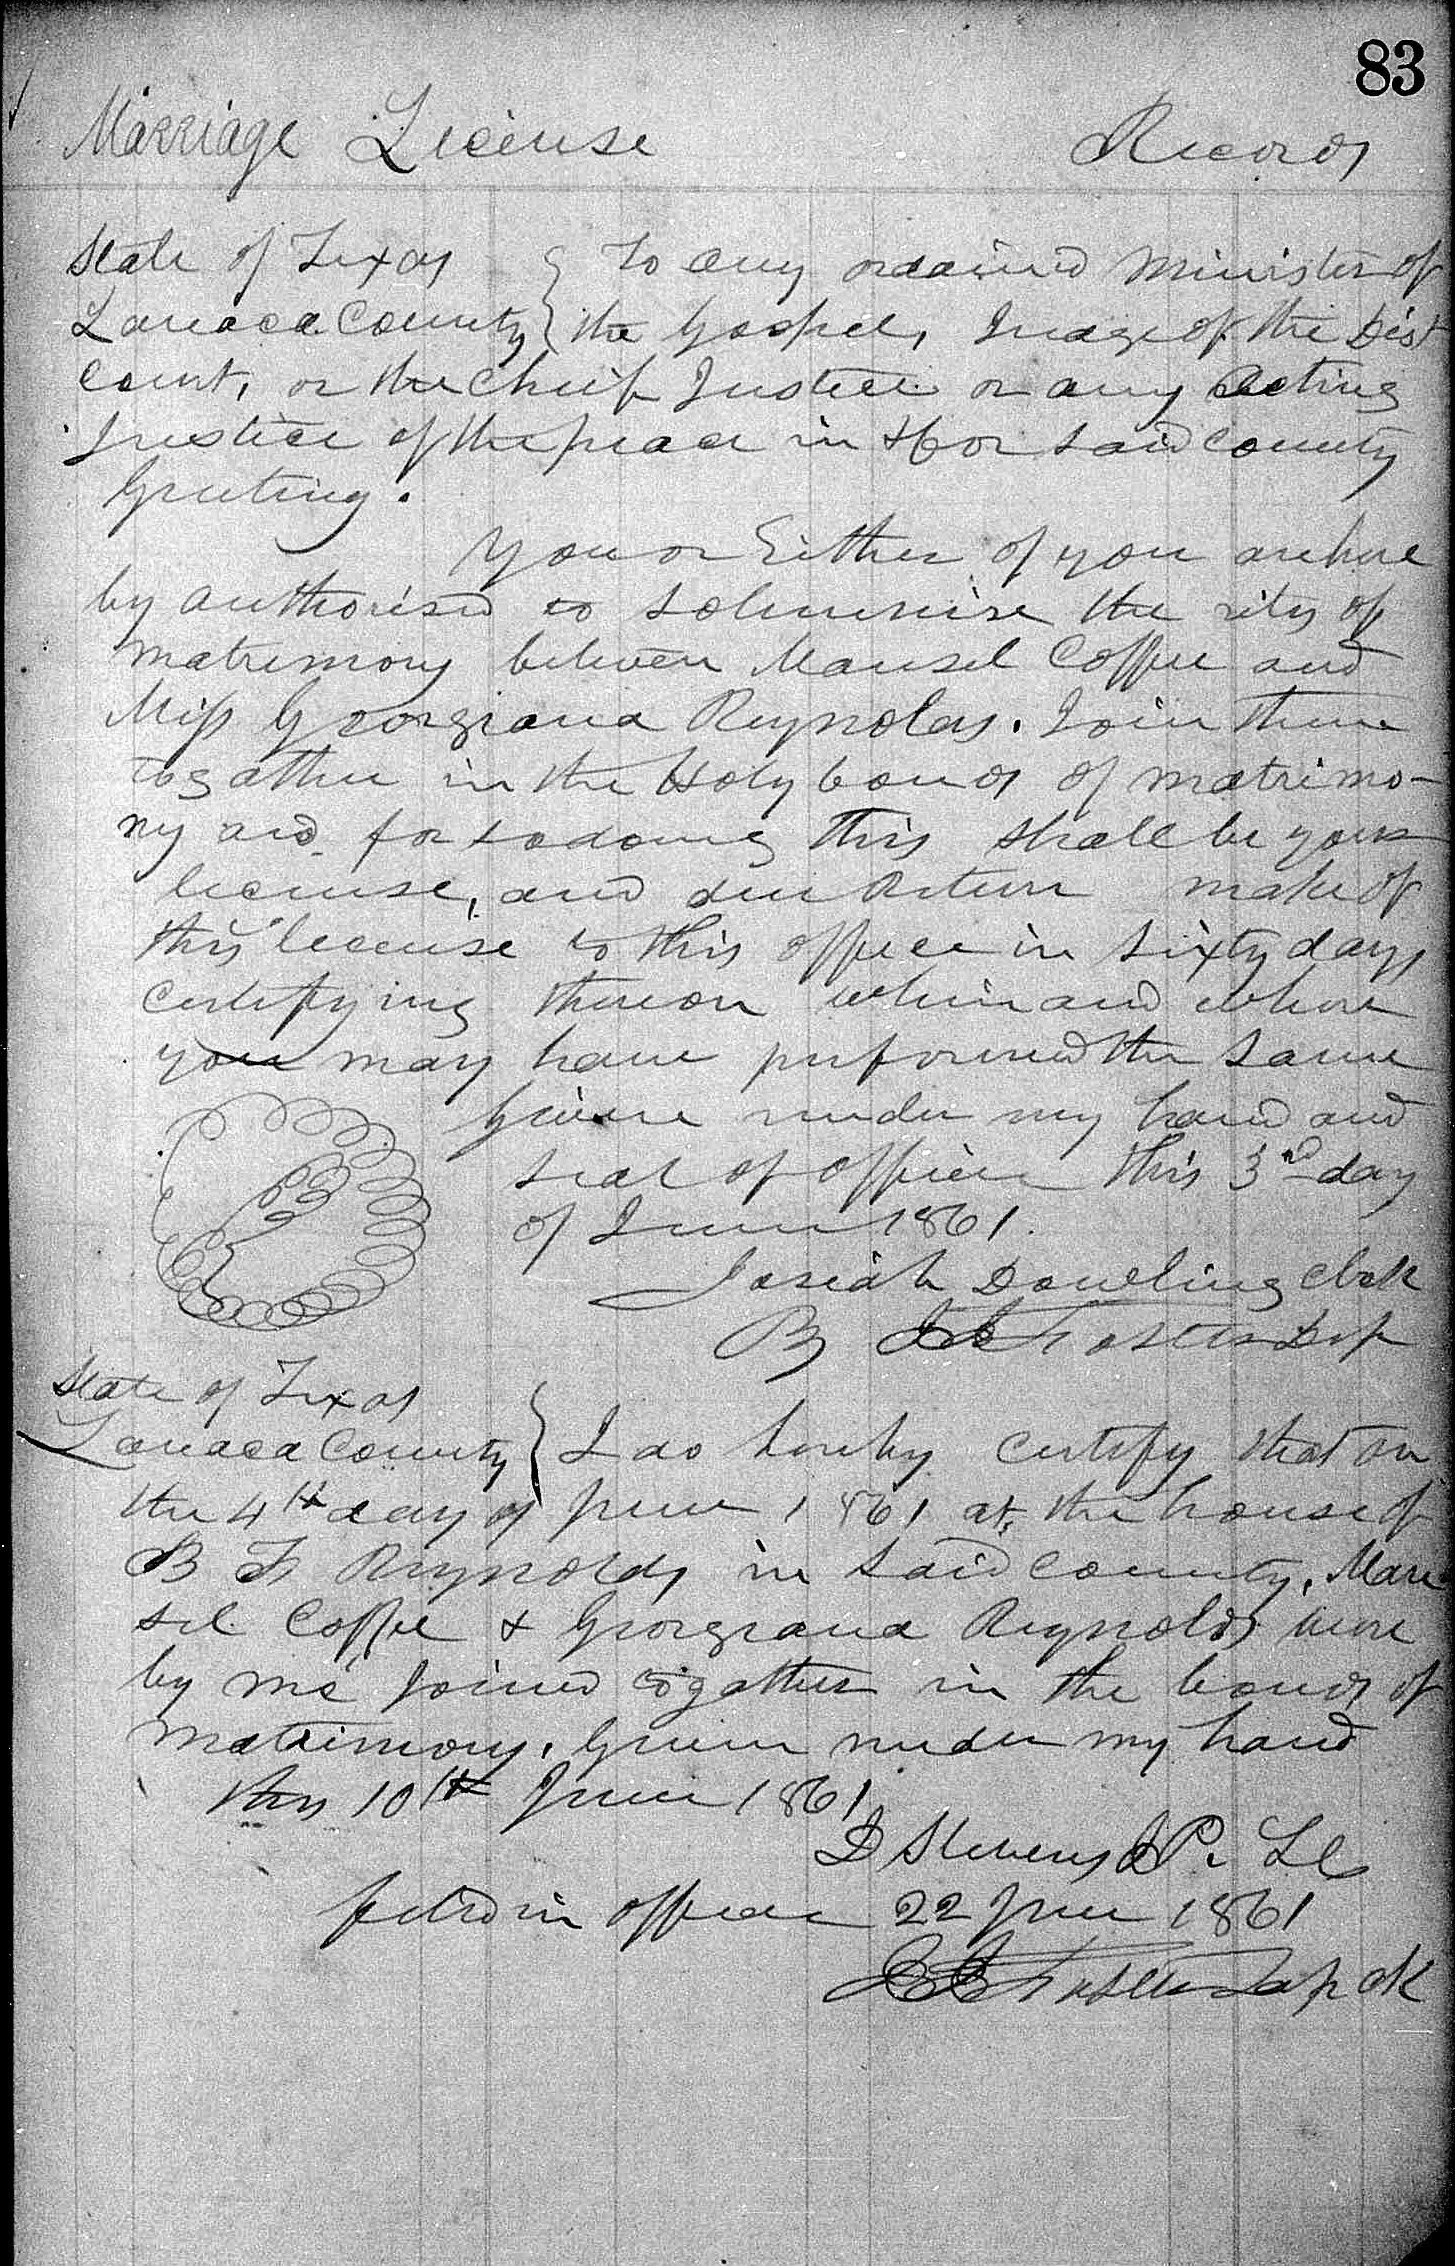 83
Marriage License Records
State of Texas } To any ordained Minister of
Lavaca County } the Gospel, Judge of the Dist
Court, or the Chief Justice or any acting
Justice of the peace in & for said County
Greeting.
You or Either of you are here
by authorised to solemnise the rites of
matrimony between Mansel Coffee and
Miss Georgiana Reynolds. Join them
togather in the Holy bonds of matrimo-
ny and for so doing This shall be your
license, and due return make of
this license to this office in sixty days
certifying thereon when and where
you may have performed the same
Given under my hand and
seal of office this 3rd day
of June 1861.
Josiah Dowling Clerk
By Foster Dep
State of Texas
Lavaca County } I do hereby certify that on
the 4th day of June 1861 at the house of
B F Reynolds in said County, Man
sel Coffee & Georgiana Reynolds were
by me joined togather in the bonds of
matrimony. Given under my hand
this 10th June 1861
D Stevens J P. L C
filed in office 22 June 1861
Foster Dep Clk